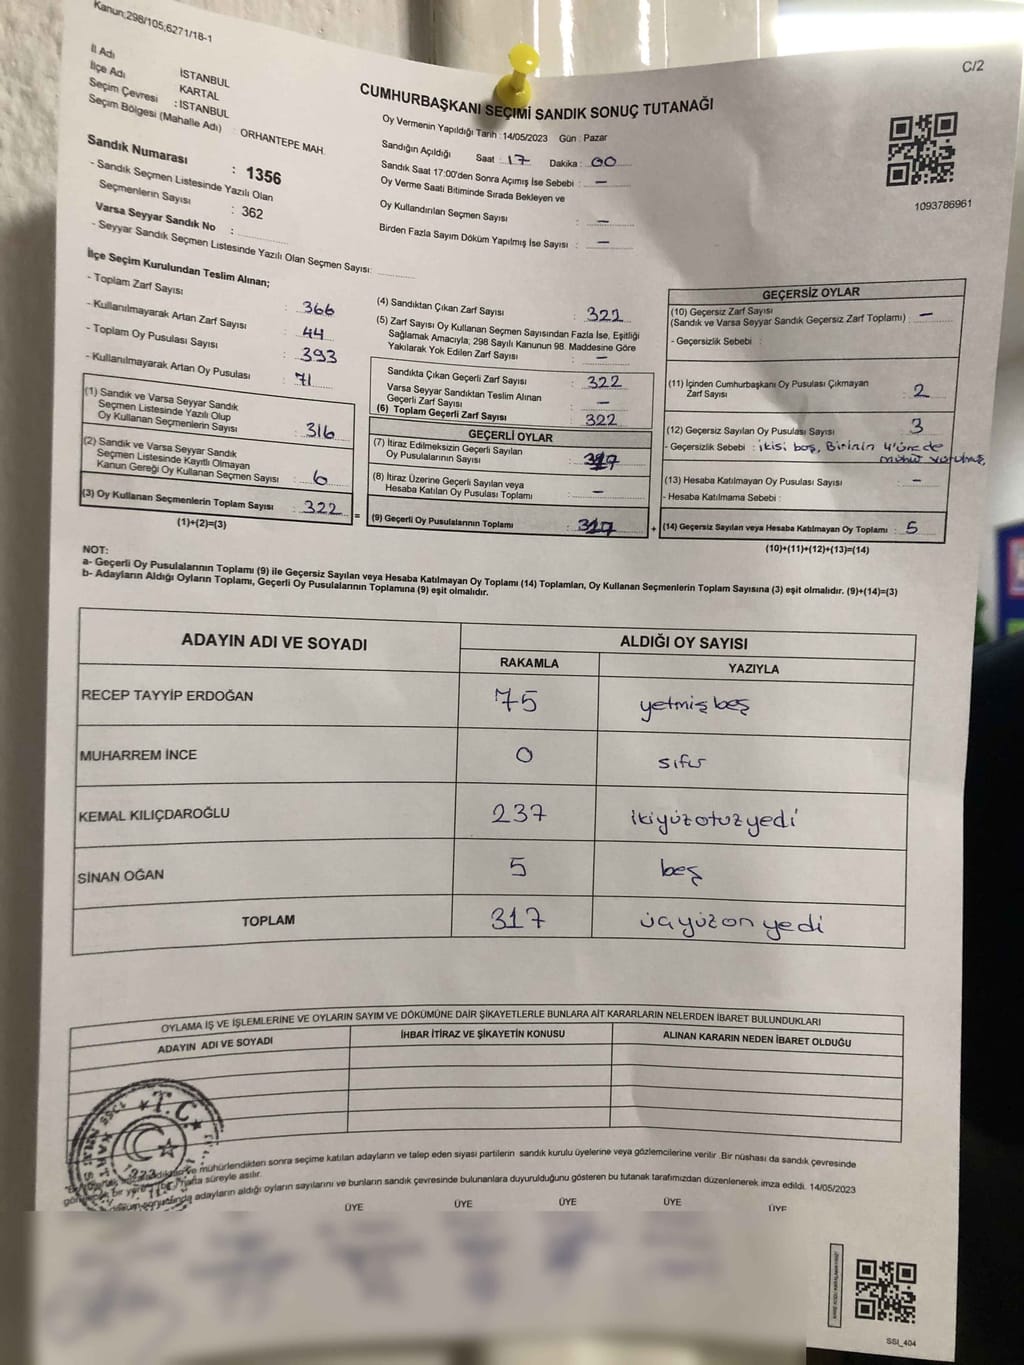 Kanun;298/105;6271/18-1
C/2
İl Adı İSTANBUL
İlçe Adı KARTAL
Seçim Çevresi : İSTANBUL
Seçim Bölgesi (Mahalle Adı) : ORHANTEPE MAH.
Sandık Numarası : 1356
- Sandık Seçmen Listesinde Yazılı Olan
Seçmenlerin Sayısı : 362
Varsa Seyyar Sandık No :
- Seyyar Sandık Seçmen Listesinde Yazılı Olan Seçmen Sayısı:
CUMHURBAŞKANI SEÇİMİ SANDIK SONUÇ TUTANAĞI
Oy Vermenin Yapıldığı Tarih : 14/05/2023 Gün : Pazar
Sandığın Açıldığı Saat : 17 Dakika : 00
Sandık Saat 17:00'den Sonra Açımış İse Sebebi : —
Oy Verme Saati Bitiminde Sırada Bekleyen ve
Oy Kullandırılan Seçmen Sayısı : —
Birden Fazla Sayım Döküm Yapılmış İse Sayısı : —
1093786961
İlçe Seçim Kurulundan Teslim Alınan;
- Toplam Zarf Sayısı : 366
- Kullanılmayarak Artan Zarf Sayısı : 44
- Toplam Oy Pusulası Sayısı : 393
- Kullanılmayarak Artan Oy Pusulası : 71
(1) Sandık ve Varsa Seyyar Sandık
Seçmen Listesinde Yazılı Olup
Oy Kullanan Seçmenlerin Sayısı : 316
(2) Sandık ve Varsa Seyyar Sandık
Seçmen Listesinde Kayıtlı Olmayan
Kanun Gereği Oy Kullanan Seçmen Sayısı : 6
(3) Oy Kullanan Seçmenlerin Toplam Sayısı : 322 =
(1)+(2)=(3)
(4) Sandıktan Çıkan Zarf Sayısı : 322
(5) Zarf Sayısı Oy Kullanan Seçmen Sayısından Fazla İse, Eşitliği
Sağlamak Amacıyla; 298 Sayılı Kanunun 98. Maddesine Göre
Yakılarak Yok Edilen Zarf Sayısı : —
Sandıkta Çıkan Geçerli Zarf Sayısı : 322
Varsa Seyyar Sandıktan Teslim Alınan
Geçerli Zarf Sayısı : —
(6) Toplam Geçerli Zarf Sayısı : 322
GEÇERLİ OYLAR
(7) İtiraz Edilmeksizin Geçerli Sayılan
Oy Pusulalarının Sayısı : 317
(8) İtiraz Üzerine Geçerli Sayılan veya
Hesaba Katılan Oy Pusulası Toplamı : —
(9) Geçerli Oy Pusulalarının Toplamı : 317 +
GEÇERSİZ OYLAR
(10) Geçersiz Zarf Sayısı
(Sandık ve Varsa Seyyar Sandık Geçersiz Zarf Toplamı) : —
- Geçersizlik Sebebi :
(11) İçinden Cumhurbaşkanı Oy Pusulası Çıkmayan
Zarf Sayısı : 2
(12) Geçersiz Sayılan Oy Pusulası Sayısı : 3
- Geçersizlik Sebebi : ikisi boş, Birinin 4'ünede
mühür vurulmuş,
(13) Hesaba Katılmayan Oy Pusulası Sayısı : —
- Hesaba Katılmama Sebebi :
(14) Geçersiz Sayılan veya Hesaba Katılmayan Oy Toplamı : 5
(10)+(11)+(12)+(13)=(14)
NOT:
a- Geçerli Oy Pusulalarının Toplamı (9) ile Geçersiz Sayılan veya Hesaba Katılmayan Oy Toplamı (14) Toplamları, Oy Kullanan Seçmenlerin Toplam Sayısına (3) eşit olmalıdır. (9)+(14)=(3)
b- Adayların Aldığı Oyların Toplamı, Geçerli Oy Pusulalarının Toplamına (9) eşit olmalıdır.
ADAYIN ADI VE SOYADI ALDIĞI OY SAYISI
RAKAMLA YAZIYLA
RECEP TAYYİP ERDOĞAN 75 yetmiş beş
MUHARREM İNCE 0 sıfır
KEMAL KILIÇDAROĞLU 237 ikiyüzotuzyedi
SİNAN OĞAN 5 beş
TOPLAM 317 üçyüzonyedi
OYLAMA İŞ VE İŞLEMLERİNE VE OYLARIN SAYIM VE DÖKÜMÜNE DAİR ŞİKAYETLERLE BUNLARA AİT KARARLARIN NELERDEN İBARET BULUNDUKLARI
ADAYIN ADI VE SOYADI İHBAR İTİRAZ VE ŞİKAYETİN KONUSU ALINAN KARARIN NEDEN İBARET OLDUĞU
T.C.
mühürlendikten sonra seçime katılan adayların ve talep eden siyasi partilerin sandık kurulu üyelerine veya gözlemcilerine verilir. Bir nüshası da sandık çevresinde
süreyle asılır.
adayların aldığı oyların sayılarını ve bunların sandık çevresinde bulunanlara duyurulduğunu gösteren bu tutanak tarafımızdan düzenlenerek imza edildi. 14/05/2023
ÜYE ÜYE ÜYE ÜYE ÜYE
SSI_404